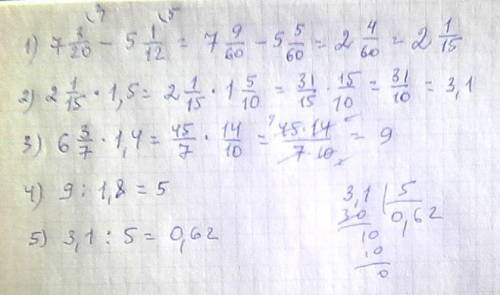 \3 \5
1) 7 3/20 - 5 1/12 = 7 9/60 - 5 5/60 = 2 4/60 = 2 1/15
2) 2 1/15 · 1,5 = 2 1/15 · 1 5/10 = 31/15 · 15/10 = 31/10 = 3,1
3) 6 3/7 · 1,4 = 45/7 · 14/10 = 45·14/7·10 = 9
4) 9 : 1,8 = 5
5) 3,1 : 5 = 0,62
3,1 | 5
30 0,62
10
10
0